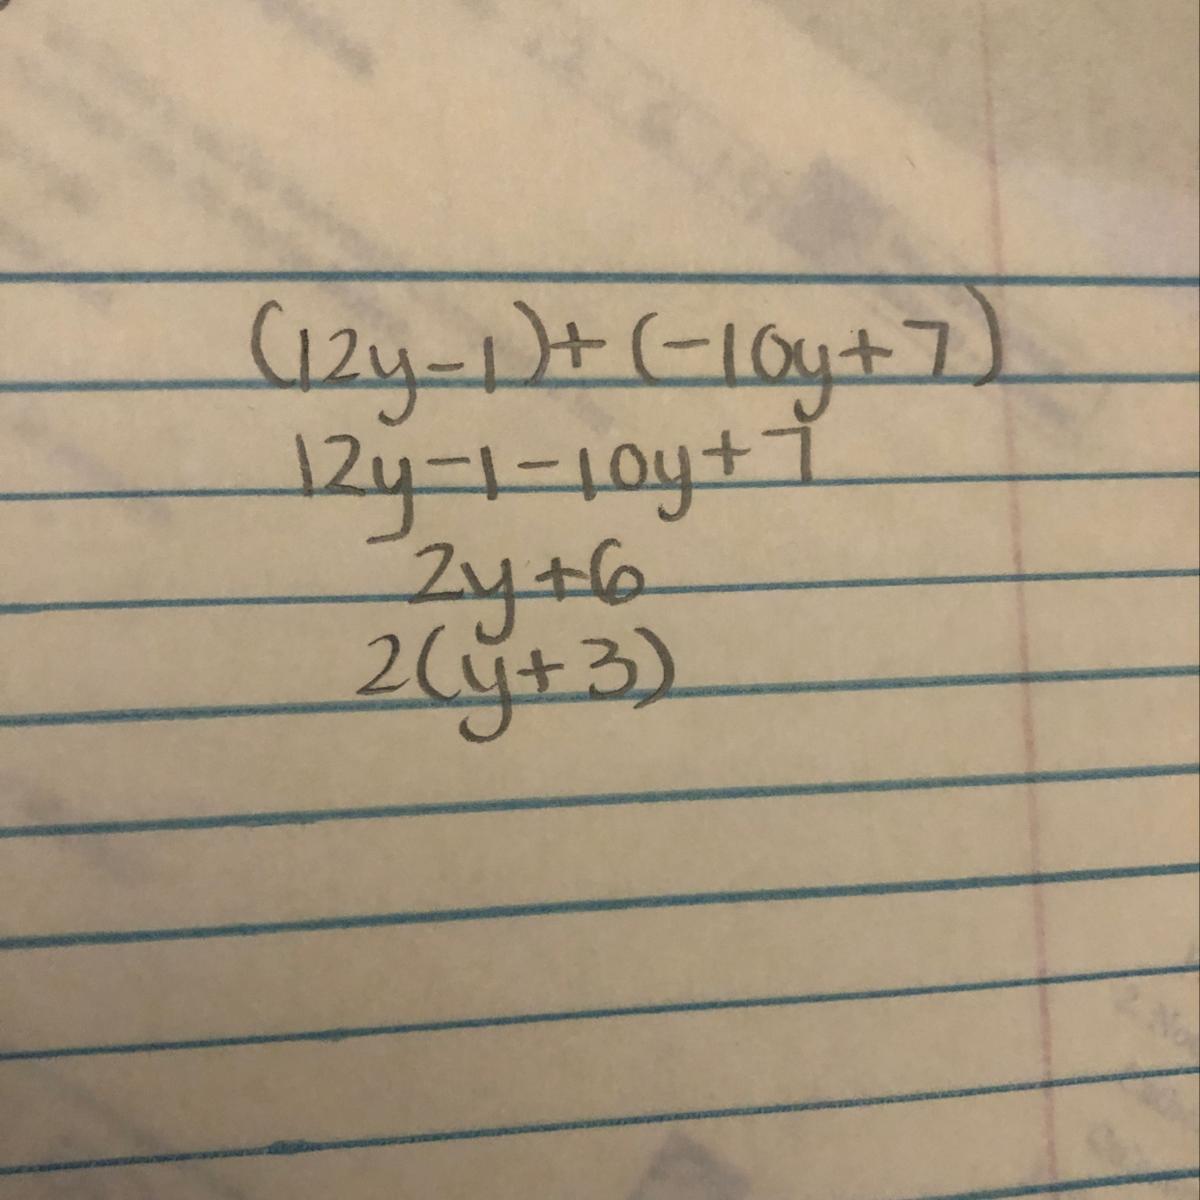 (12y-1)+(-10y+7)
12y-1-10y+7
2y+6
2(y+3)